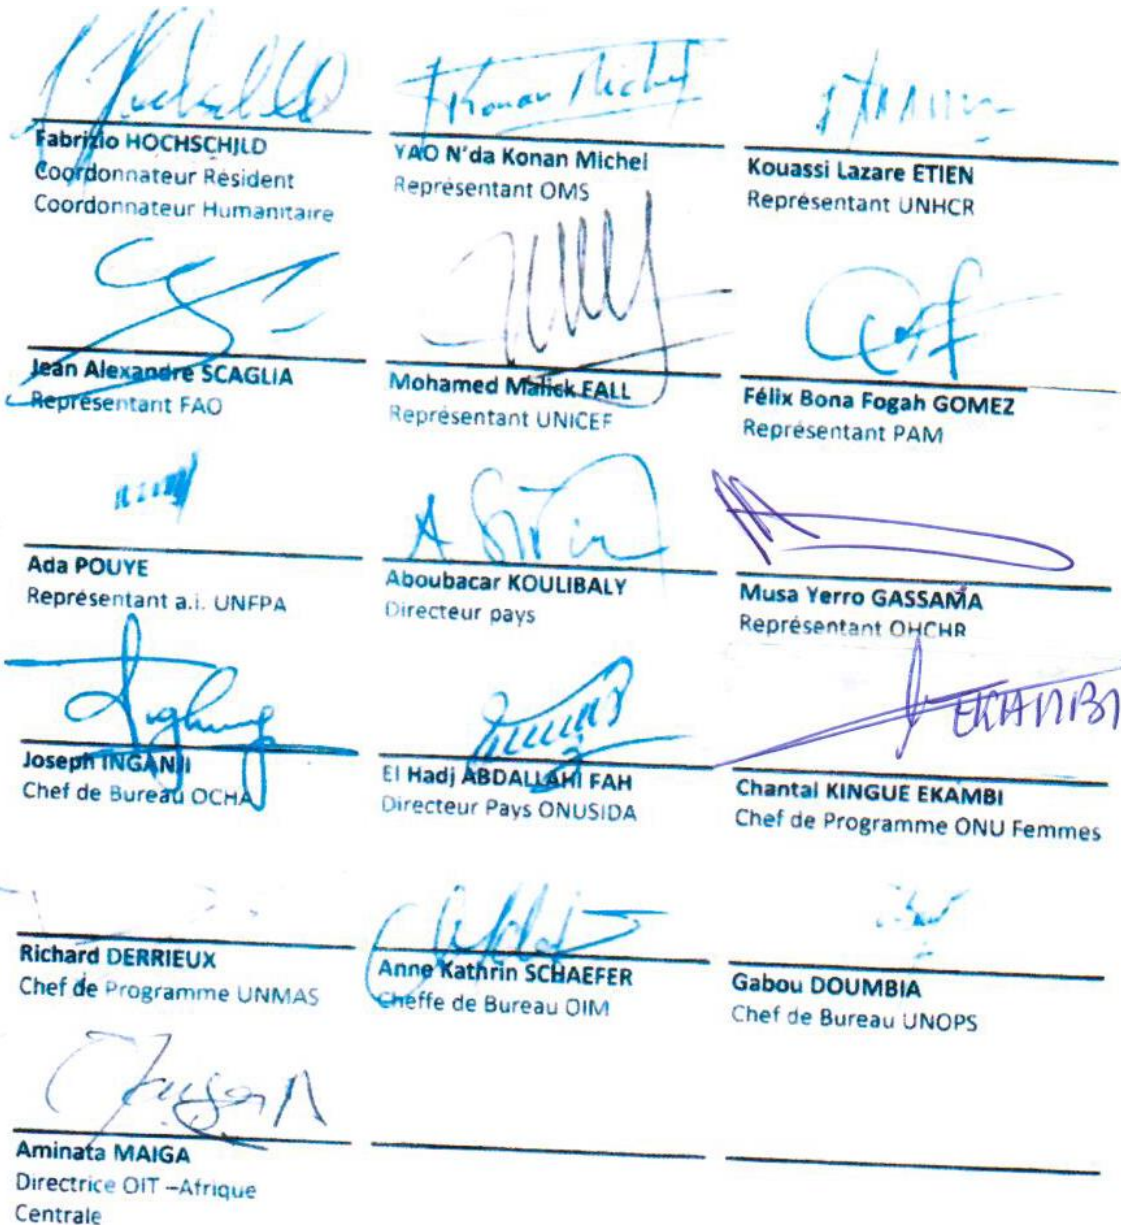 Fabrizio HOCHSCHILD
Coordonnateur Résident
Coordonnateur Humanitaire
Konan Michel
YAO N'da Konan Michel
Représentant OMS
Kouassi Lazare ETIEN
Représentant UNHCR
Jean Alexandre SCAGLIA
Représentant FAO
Mohamed Malick FALL
Représentant UNICEF
Félix Bona Fogah GOMEZ
Représentant PAM
Ada POUYE
Représentant a.i. UNFPA
Aboubacar KOULIBALY
Directeur pays
Musa Yerro GASSAMA
Représentant OHCHR
Joseph INGANJI
Chef de Bureau OCHA
El Hadj ABDALLAHI FAH
Directeur Pays ONUSIDA
EKAMBI
Chantal KINGUE EKAMBI
Chef de Programme ONU Femmes
Richard DERRIEUX
Chef de Programme UNMAS
Anne Kathrin SCHAEFER
Cheffe de Bureau OIM
Gabou DOUMBIA
Chef de Bureau UNOPS
Aminata MAIGA
Directrice OIT –Afrique
Centrale